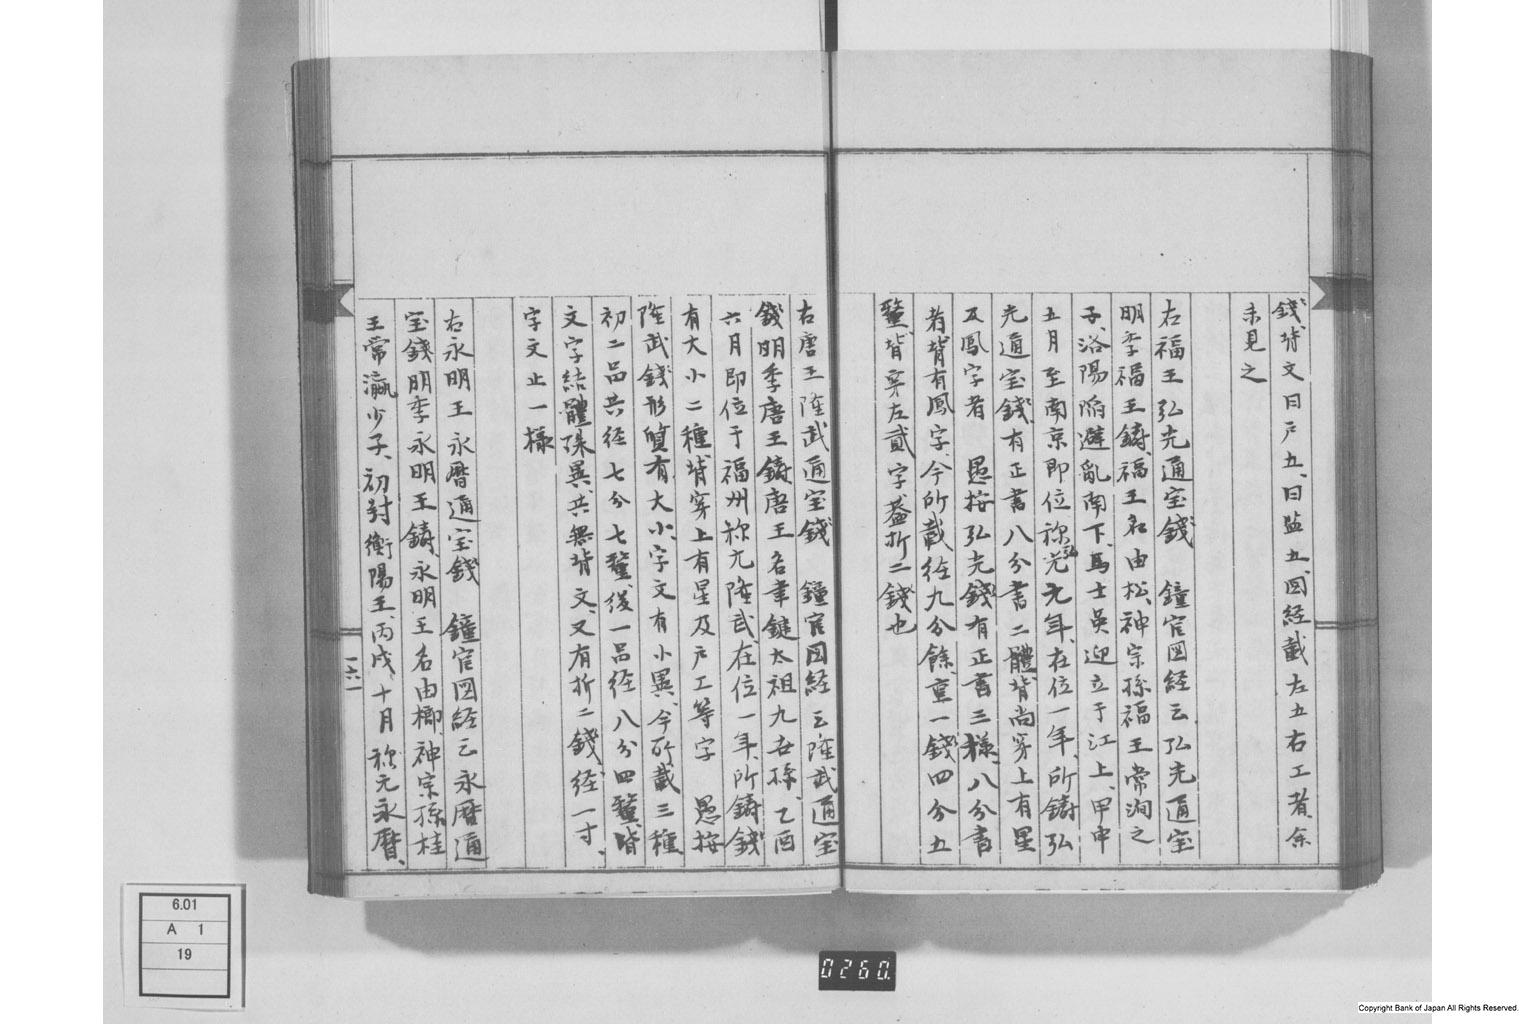 錢背文曰戸五、曰监五、図経載左五右工者、余
未見之
右福王弘光通宝錢　鐘官図経云、弘光通宝
明季福王鑄、福王名由松、神宗孫福王常洵之
子、洛陽陷避亂南下、馬士英迎立于江上、甲申
五月至南京即位称弘光元年、在位一年、所鑄弘
光通宝錢、有正書八分書二體、背尚穿上有星
及鳳字者　愚按弘光錢有正書三様、八分書
者背有鳳字、今所載径九分餘、重一錢四分五
釐、背穿左貳字蓋折二錢也
右唐王隆武通宝錢　鐘官図経云隆武通宝
錢明季唐王鑄唐王名聿鍵太祖九世孫、乙酉
六月即位于福州称元隆武、在位一年、所鑄錢
有大小二種、背穿上有星及戸工等字　愚按
隆武錢形質有大小、字文有小異、今所載三種
初二品共径七分七釐、後一品径八分四釐、皆
文字結體殊異、共無背文、又有折二錢、径一寸、
字文止一様
右永明王永暦通宝錢　鐘官図経云永暦通
宝錢明季永明王鑄、永明王名由榔、神宗孫桂
王常瀛少子、初封衡陽王、丙戌十月称元永暦、
二六一
6.01
A 1
19
0260.
Copyright Bank of Japan All Rights Reserved.